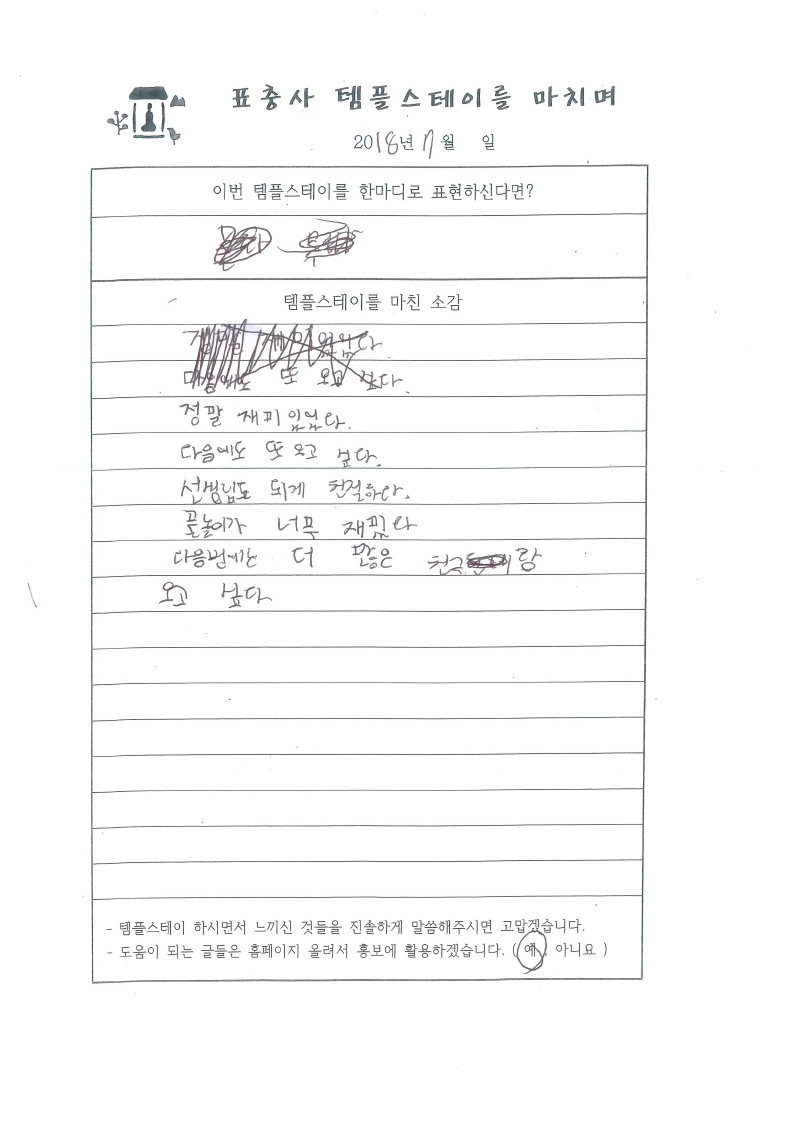 표충사 템플스테이를 마치며
2018년 7월 일
이번 템플스테이를 한마디로 표현하신다면?
템플스테이를 마친 소감
다음에도 또 오고 싶다.
정말 재미있었다.
다음에도 또 오고 싶다.
선생님도 되게 친절하다.
물놀이가 너무 재밌다
다음번에는 더 많은 친구랑
오고 싶다
- 템플스테이 하시면서 느끼신 것들을 진솔하게 말씀해주시면 고맙겠습니다.
- 도움이 되는 글들은 홈페이지 올려서 홍보에 활용하겠습니다. ( 예, 아니요 )